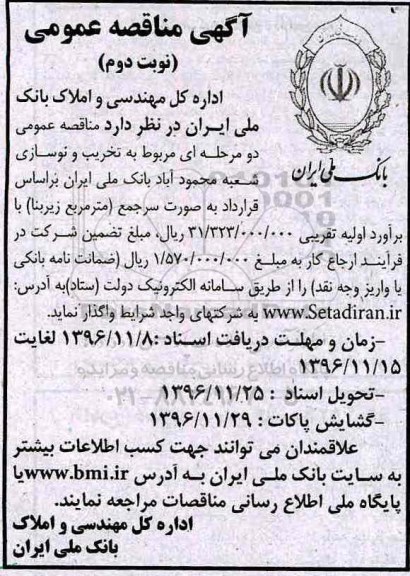 آگهی مناقصه عمومی
(نوبت دوم)
بانک ملی ایران
اداره کل مهندسی و املاک بانک
ملی ایران در نظر دارد مناقصه عمومی
دو مرحله ای مربوط به تخریب و نوسازی
شعبه محمود آباد بانک ملی ایران براساس
قرارداد به صورت سرجمع (مترمربع زیربنا) با
برآورد اولیه تقریبی ۳۱/۳۲۳/۰۰۰/۰۰۰ ریال، مبلغ تضمین شرکت در
فرآیند ارجاع کار به مبلغ ۱/۵۷۰/۰۰۰/۰۰۰ ریال (ضمانت نامه بانکی
یا واریز وجه نقد) را از طریق سامانه الکترونیک دولت (ستاد)به آدرس:
www.Setadiran.ir به شرکتهای واجد شرایط واگذار نماید.
-زمان و مهلت دریافت اسناد :۱۳۹۶/۱۱/۸ لغایت
۱۳۹۶/۱۱/۱۵
-تحویل اسناد : ۱۳۹۶/۱۱/۲۵
-گشایش پاکات : ۱۳۹۶/۱۱/۲۹
علاقمندان می توانند جهت کسب اطلاعات بیشتر
به سایت بانک ملی ایران به آدرس www.bmi.irیا
پایگاه ملی اطلاع رسانی مناقصات مراجعه نمایند.
اداره کل مهندسی و املاک
بانک ملی ایران